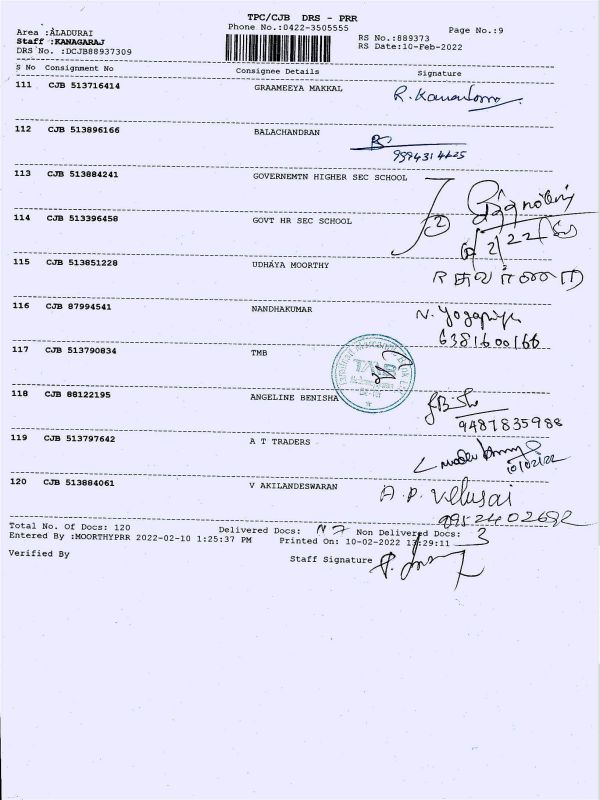 TPC/CJB DRS - PRR
Area :ALADURAI Phone No.:0422-3505555 Page No.:9
Staff :KANAGARAJ RS No.:889373
DRS No. :DCJB88937309 RS Date:10-Feb-2022
S No Consignment No Consignee Details Signature
111 CJB 513716414 GRAAMEEYA MAKKAL
112 CJB 513896166 BALACHANDRAN
113 CJB 513884241 GOVERNEMTN HIGHER SEC SCHOOL
114 CJB 513396458 GOVT HR SEC SCHOOL
115 CJB 513851228 UDHAYA MOORTHY
116 CJB 87994541 NANDHAKUMAR
6381600166
117 CJB 513790834 TMB
118 CJB 88122195 ANGELINE BENISHA
9487835988
119 CJB 513797642 A T TRADERS
10/02/22
120 CJB 513884061 V AKILANDESWARAN A.P. Velusai
9952402692
Total No. Of Docs: 120 Delivered Docs: Non Delivered Docs: 3
Entered By :MOORTHYPRR 2022-02-10 1:25:37 PM Printed On: 10-02-2022 13:29:11
Verified By Staff Signature